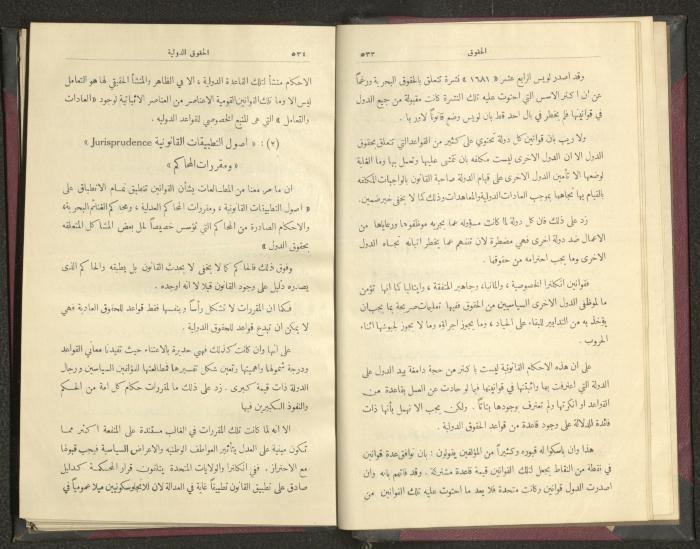 ٥٣٣ الحقوق
وقد اصدر لويس الرابع عشر « ١٦٨١ » نشرة تتعلق بالحقوق البحرية ورغماً
عن ان اكثر الاسس التي احتوت عليه تلك النشرة كانت مقبولة من جميع الدول
في قوانينها فلم يخطر في بال احد قط بان لويس وضع قانوناً لاوربا .
ولا ريب بان قوانين كل دولة تحتوي على كثير من القواعد التي تتعلق بحقوق
الدول الا ان الدول الاخرى ليست مكلفه بان تتمشى عليها وتعمل بها وما الغاية
لوضعها الا تأمين الدول الاخرى على قيام الدولة صاحبة القانون بالواجبات المكلفه
بالقيام بها تجاهها بموجب العادات الدولية والمعاهدات وذلك كما لا يخفى خير ضمين .
زد على ذلك فان كل دولة لما كانت مسؤوله عما يجريه موظفوها ورعاياها من
الاعمال ضد دولة اخرى فهي مضطرة لان تفهم عما يحظر اتيانه تجاه الدول
الاخرى وما يجب احترامه من حقوقها .
فقوانين انكلترا الخصوصية ، والمانيا، وجماهير المتفقة ، وايتاليا كما انها تؤمن
ما لموظفي الدول الاخرى السياسيين من الحقوق ففيها تعليمات صريحة بما يجب ان
يؤخذ به من التدابير للبقاء على الحياد ، وما يجوز اجراؤه وما لا يجوز لجيوشها اثناء
الحروب .
على ان هذه الاحكام القانونية ليست باكثر من حجة دامغة بيد الدول على
الدولة التي اعترفت بها واثبتتها في قوانينها فيما لو حادت عن العمل بقاعدة من
القواعد او انكرتها ولم تعترف بوجودها بتاتاً . ولكن يجب الا نهمل بأنها ذات
فائدة للدلالة على وجود قاعدة من قواعد الحقوق الدولية .
هذا وان باسكوا له فيوره وكثيراً من المؤلفين يقولون : بان توافق عدة قوانين
في نقطة من النقاط يجعل لتلك القوانين قيمة قاعدة مشتركة . وقد فاتهم بانه وان
اصدرت الدول قوانين وكانت متحدة فلا يعد ما احتوت عليه تلك القوانين من
الحقوق الدولية ٥٣٤
الاحكام منشأ لتلك القاعدة الدولية ، الا في الظاهر والمنشأ الحقيقي لها هو التعامل
ليس الا وما تلك القوانين القومية الا عنصر من العناصر الاثباتية لوجود « العادات
والتعامل » التي هى المنبع الخصوصي لقواعد الدوليه .
(٢) : « اصول التطبيقات القانونية Jurisprudence »
« ومقررات المحاكم »
ان ما مر معنا من المطالعات بشأن القوانين تنطبق تمام الانطباق على
« اصول التطبيقات القانونية ، ومقررات المحاكم العدلية ، ومحاكم الغنائم البحرية ،
والاحكام الصادرة من المحاكم التي تؤسس خصيصاً لحل بعض المشاكل المتعلقه
بحقوق الدول »
وفوق ذلك فالحاكم كما لا يخفى لا يحدث القانون بل يطبقه والحاكم الذى
يصدره دليل على وجود القانون قبلا لا انه اوجده .
فكما ان المقررات لا تشكل رأساً وبنفسها فقط قواعد للحقوق العادية فهي
لا يمكن ان تبدع قواعد للحقوق الدولية .
على انها وان كانت كذلك فهي جديرة بالاعتناء حيث تفيدنا معاني القواعد
ودرجة شمولها واهميتها وتعين شكل تفسيرها فمطالعتها للمؤلفين السياسيين ورجال
الدولة ذات قيمة كبرى . زد على ذلك ما لمقررات حكام كل امة من الحكم
والنفوذ الكبيرين فيها
الا انه لما كانت تلك المقررات في الغالب مستندة على المنفعة اكثر مما
تكون مبنية على العدل بتأثير العواطف الوطنيه والاعراض السياسية فيجب قبولها
مع الاحتراز . ففي انكلترا والولايات المتحدة يتلقون قرار المحكمة كدليل
صادق على تطبيق القانون تطبيقاً غاية في العدالة لان للانجلوسكونيين ميلا عمومياً في